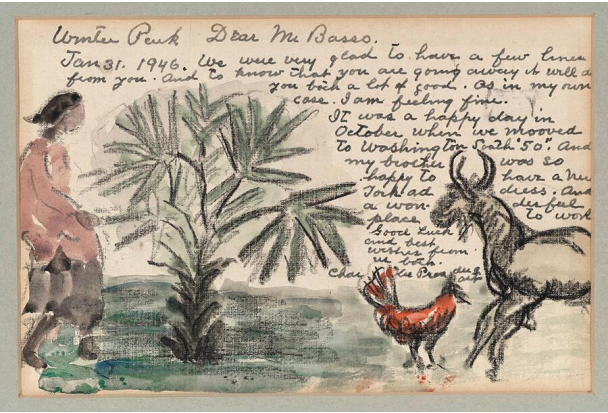 Winter Park Dear Mr Basso.
Jan 31. 1946. We were very glad to have a few lines
from you. And to know that you are going away it will do
you both a lot of good. As in my own
case. I am feeling fine.
It was a happy day in
October when we mooved
to Washington South "50". And
my brother was so
happy to have a New
York ad dress. And
a won der feel
place to work
Good Luck
and best
wishes from
us both.
Prendergast